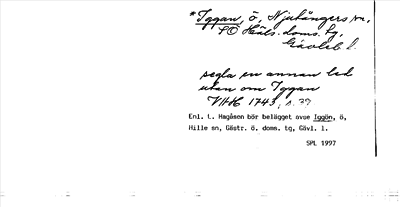 *Iggan, ö, Njutångers sn,
SO Häls. doms. tg,
Gävleb l.
segla en annan led
utan om Iggan
VHH 1743, s. 37
Enl. L. Hagåsen bör belägget avse Iggön, ö,
Hille sn, Gästr. ö. doms. tg, Gävl. l.
SPL 1997